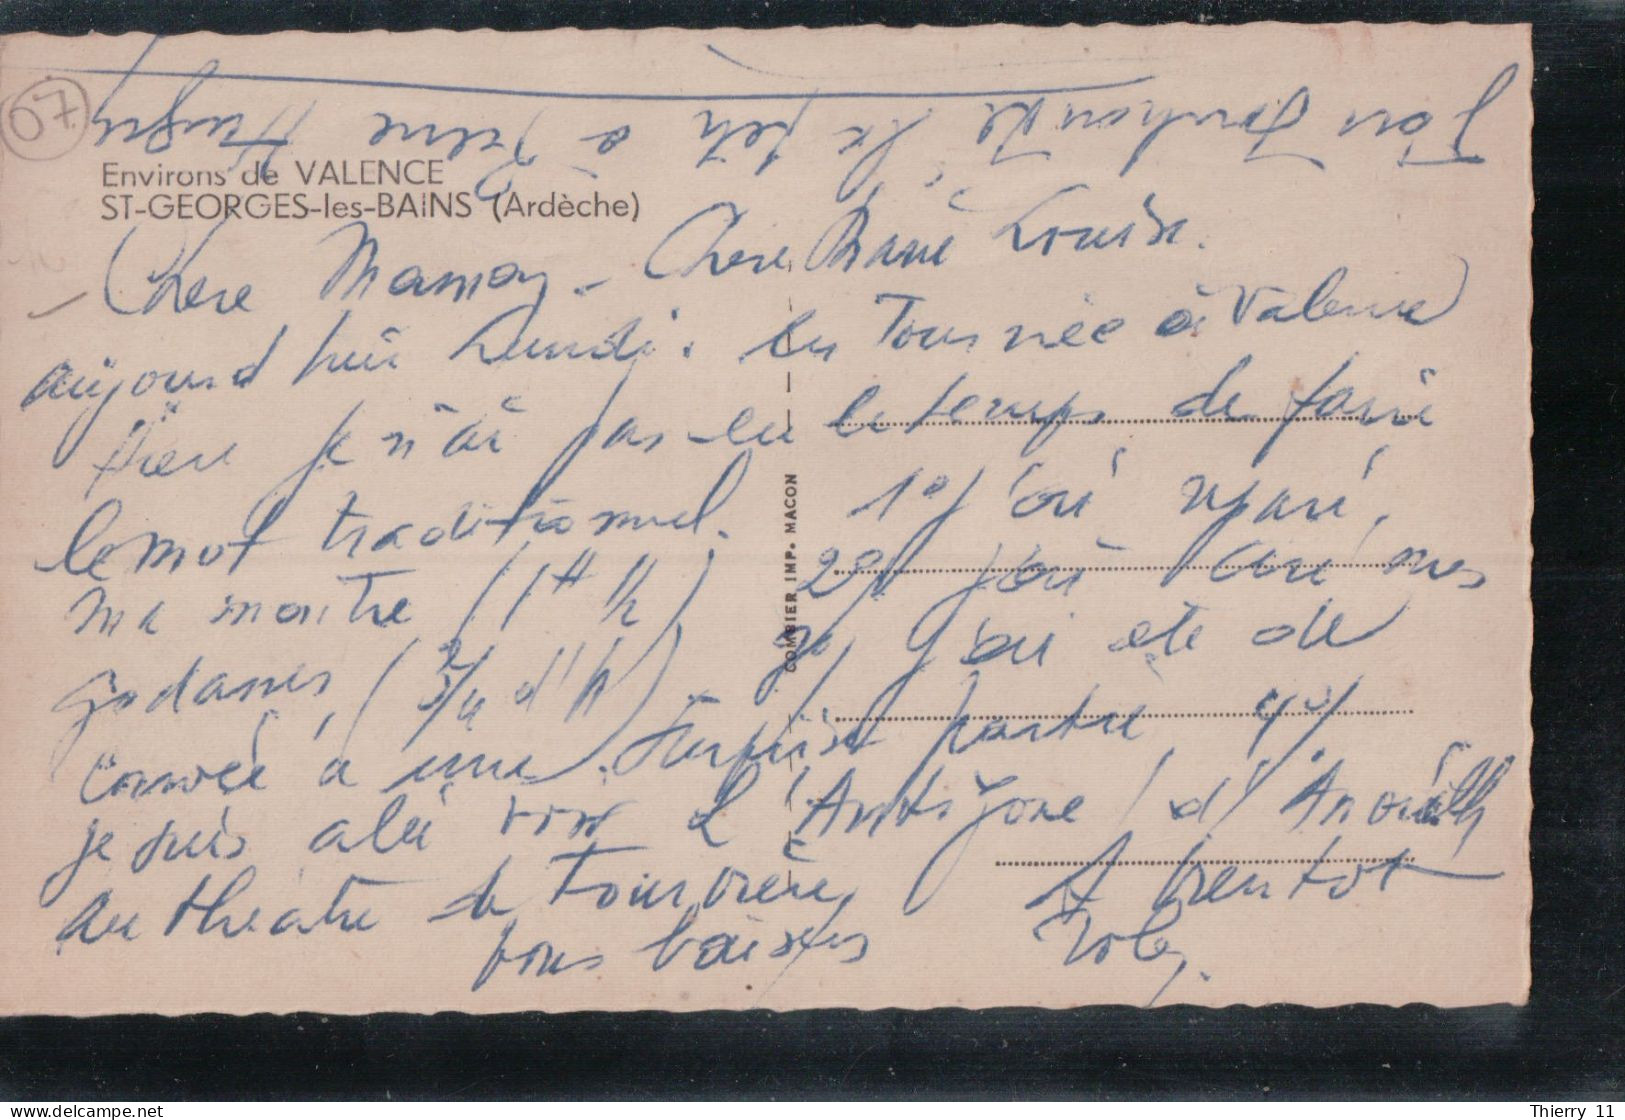 07
Environs de VALENCE
ST-GEORGES-les-BAINS (Ardèche)
Chere Maman - Chere Marie Louise.
aujourd hui Lundi. en Tournée à Valence
Hier je n'ai pas eu le temps de faire
le mot traditionnel. 1°/ j'ai réparé
ma montre (1 h) 2°/ j'ai ciré mes
godasses (3/4 d'h). 3°/ j'ai été de
convié a une surprise partie 4°/
je suis allé voir L'Antigone d'Anouilh
au théatre de Fourvière A bientot
bons baisers
COMBIER IMP. MACON
J'ai souhaité la fete à
Thierry 11